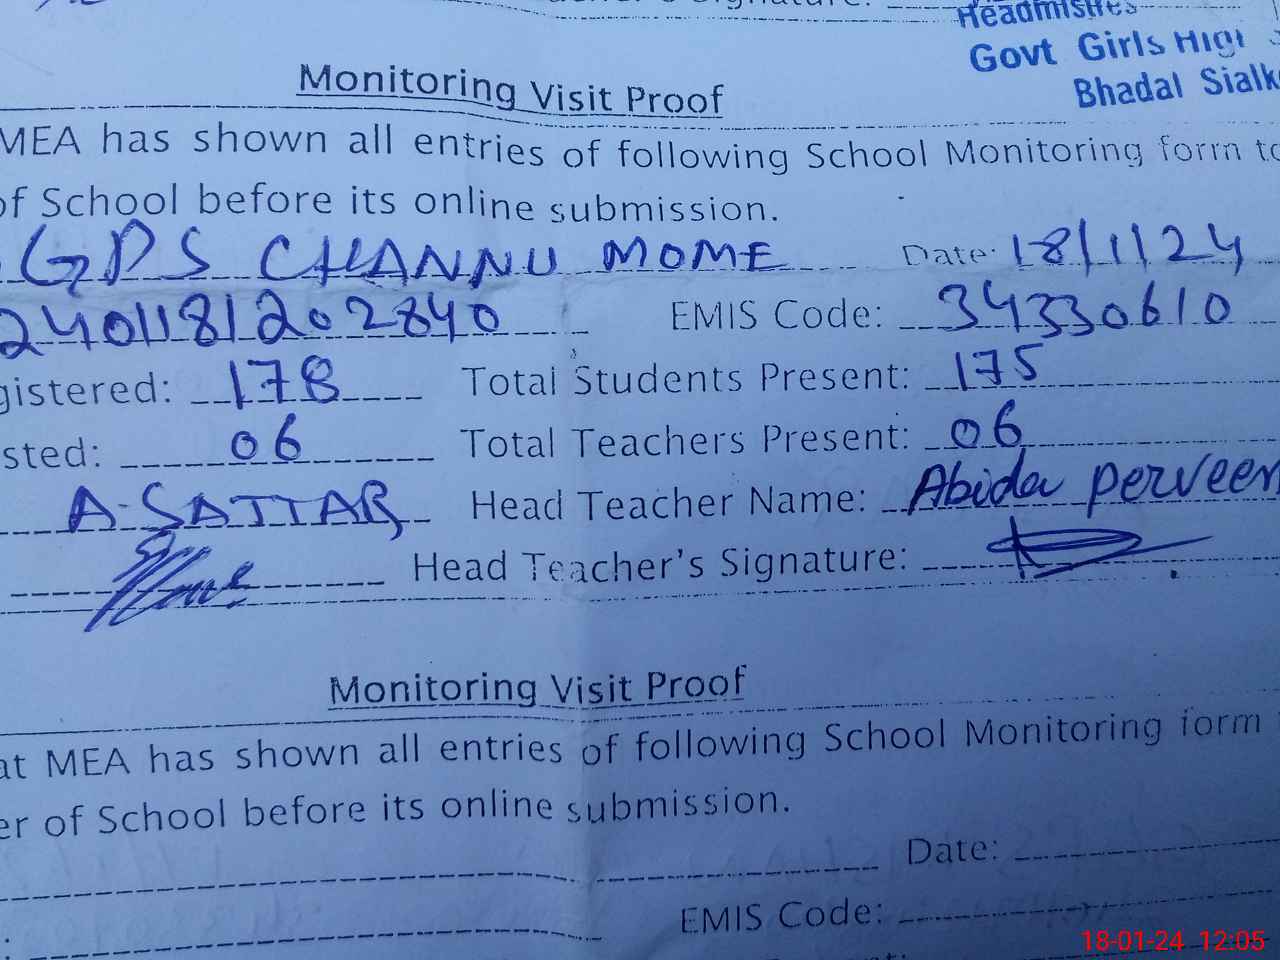 Headmistres
Govt Girls High
Bhadal Sialk
Monitoring Visit Proof
MEA has shown all entries of following School Monitoring form to
of School before its online submission.
GPS CHANNU MOME Date: 18/1/24
2401181202840 EMIS Code: 34330610
gistered: 178 Total Students Present: 175
sted: 06 Total Teachers Present: 06
A.SATTAR Head Teacher Name: Abida perveen
Head Teacher's Signature:
Monitoring Visit Proof
at MEA has shown all entries of following School Monitoring form
er of School before its online submission.
Date:
EMIS Code:
18-01-24 12:05